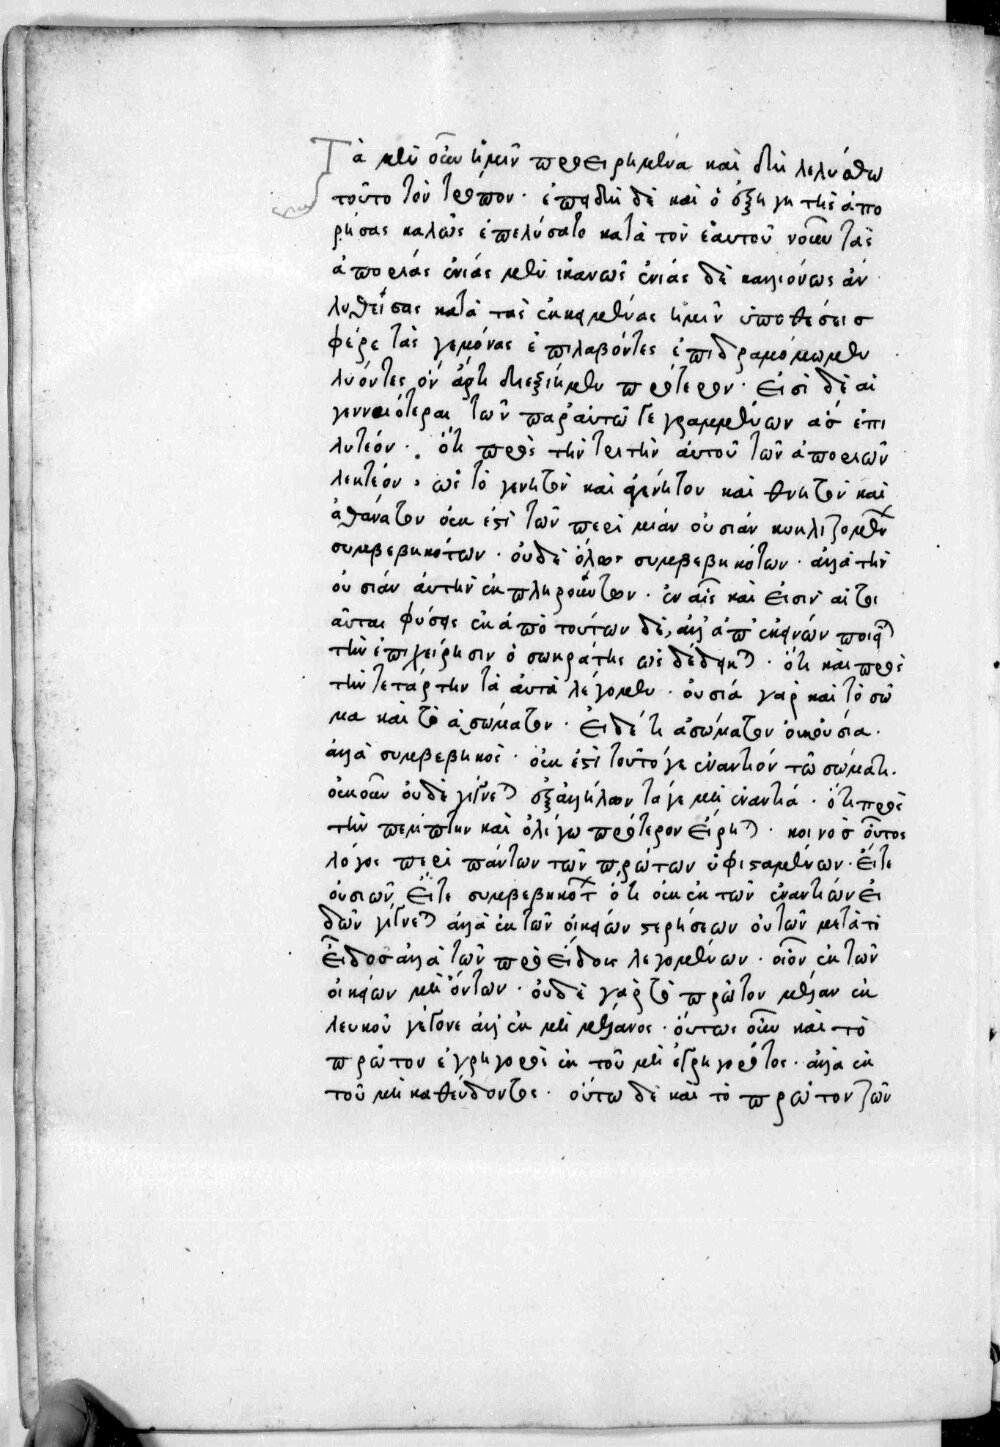 Τὰ μὲν οὖν ἡμῖν προειρημένα καὶ δὴ λελύσθω
τοῦτο τὸν τρόπον· ἐπειδὴ δὲ καὶ ὁ ἐξηγητὴς ἀπο
ρήσας καλῶς ἐπελύσατο κατὰ τὸν ἑαυτοῦ νοῦν τὰς
ἀπορίας ἐνίας μὲν ἱκανῶς ἐνίας δὲ καλλιόνως ἀν
λυθείσας κατὰ τὰς ἐκκειμένας ἡμῖν ὑποθέσεις
φέρε τὰς γεμόνας ἐπιλαβόντες ἐπιδραμόμωμεν
λύοντες ὃν ἄρτι διεξήμεν πρότερον· εἰσὶ δὲ αἱ
γενναιότεραι τῶν παρ' αὐτῶ γεγραμμένων ἃς ἐπι
λυτέον· ὅτι πρὸς τὴν τρίτην αὐτοῦ τῶν ἀποριῶν
λεκτέον, ὡς τὸ γενητὸν καὶ ἀγένητον καὶ θνητὸν καὶ
ἀθάνατον οὐκ ἔστι τῶν περὶ μίαν οὐσίαν κυκλιζομένων
συμβεβηκότων· οὐδὲ ὅλως συμβεβηκότων· ἀλλὰ τὴν
οὐσίαν αὐτὴν ἐκπληρούντων· ἐν αἷς καὶ εἰσὶν αἱ τοι
αῦται φύσεις ἐκ ἀπὸ τούτων δὲ, ἀλλ' ἀπ' ἐκείνων ποιεῖται
τὴν ἐπιχείρησιν ὁ σωκράτης ὡς δέδεικται· ὅτι καὶ πρὸς
τὴν τετάρτην τὰ αὐτὰ λέγομεν· οὐσία γὰρ καὶ τὸ σῶ
μα καὶ τὸ ἀσώματον· εἰ δέ τι ἀσώματον οὐκ οὐσία·
ἀλλὰ συμβεβηκὸς· οὐκ ἔστι τοῦτό γε ἐναντίον τῶ σώματι·
οὐκοῦν οὐδὲ γίγνεται ἐξ ἀλλήλων τά γε μὴ ἐναντία· ὅτι πρὸς
τὴν πέμπτην καὶ ὀλίγω πρότερον εἴρηται· κοινὸς οὗτος
λόγος περὶ πάντων τῶν πρώτων ὑφισταμένων· εἴτε
οὐσιῶν, εἴτε συμβεβηκότων ὅτι οὐκ ἐκ τῶν ἐναντίων εἰ
δῶν γίγνεται ἀλλὰ ἐκ τῶν οἰκείων στερήσεων οὐ τῶν μετὰ τὸ
εἶδος ἀλλὰ τῶν πρὸ εἴδους λεγομένων· οἷον ἐκ τῶν
οἰκείων μὴ ὄντων· οὐδὲ γὰρ τὸ πρῶτον μέλαν ἐκ
λευκοῦ γέγονε ἀλλ' ἐκ μὴ μέλανος· οὕτως οὖν καὶ τὸ
πρῶτον ἐγρηγορὸς ἐκ τοῦ μὴ ἐγρηγορότος· ἀλλὰ ἐκ
τοῦ μὴ καθεύδοντος· οὕτω δὲ καὶ τὸ πρῶτον ζῶν